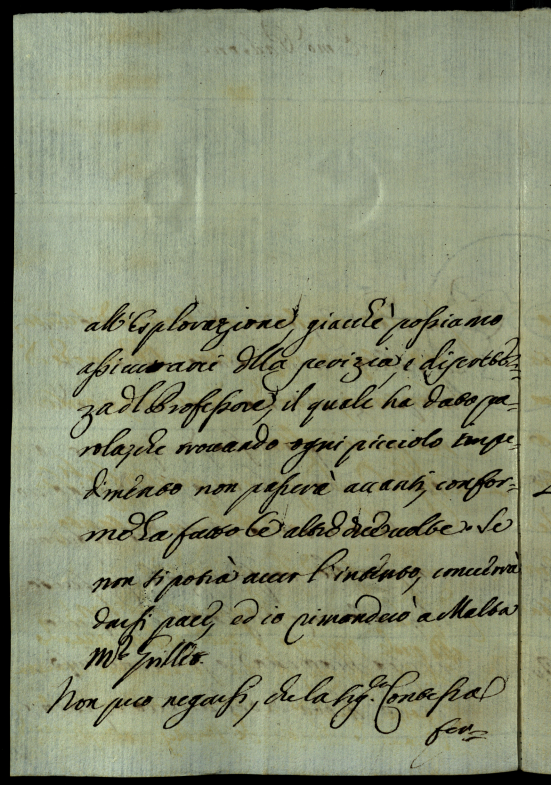 all'Esplorazione, giacchè possiamo
assicurarci della perizia, e disinvoltez-
za del Professore, il quale ha dato pa-
rola, che trovando ogni picciolo impe-
dimento non passerà avanti, confor-
me ha fatto le altre due volte. Se
non si potrà aver l'intento, converrà
darsi pace, ed io rimanderò a Malta
Mr.
Non può negarsi, che la Sig.ra Contessa